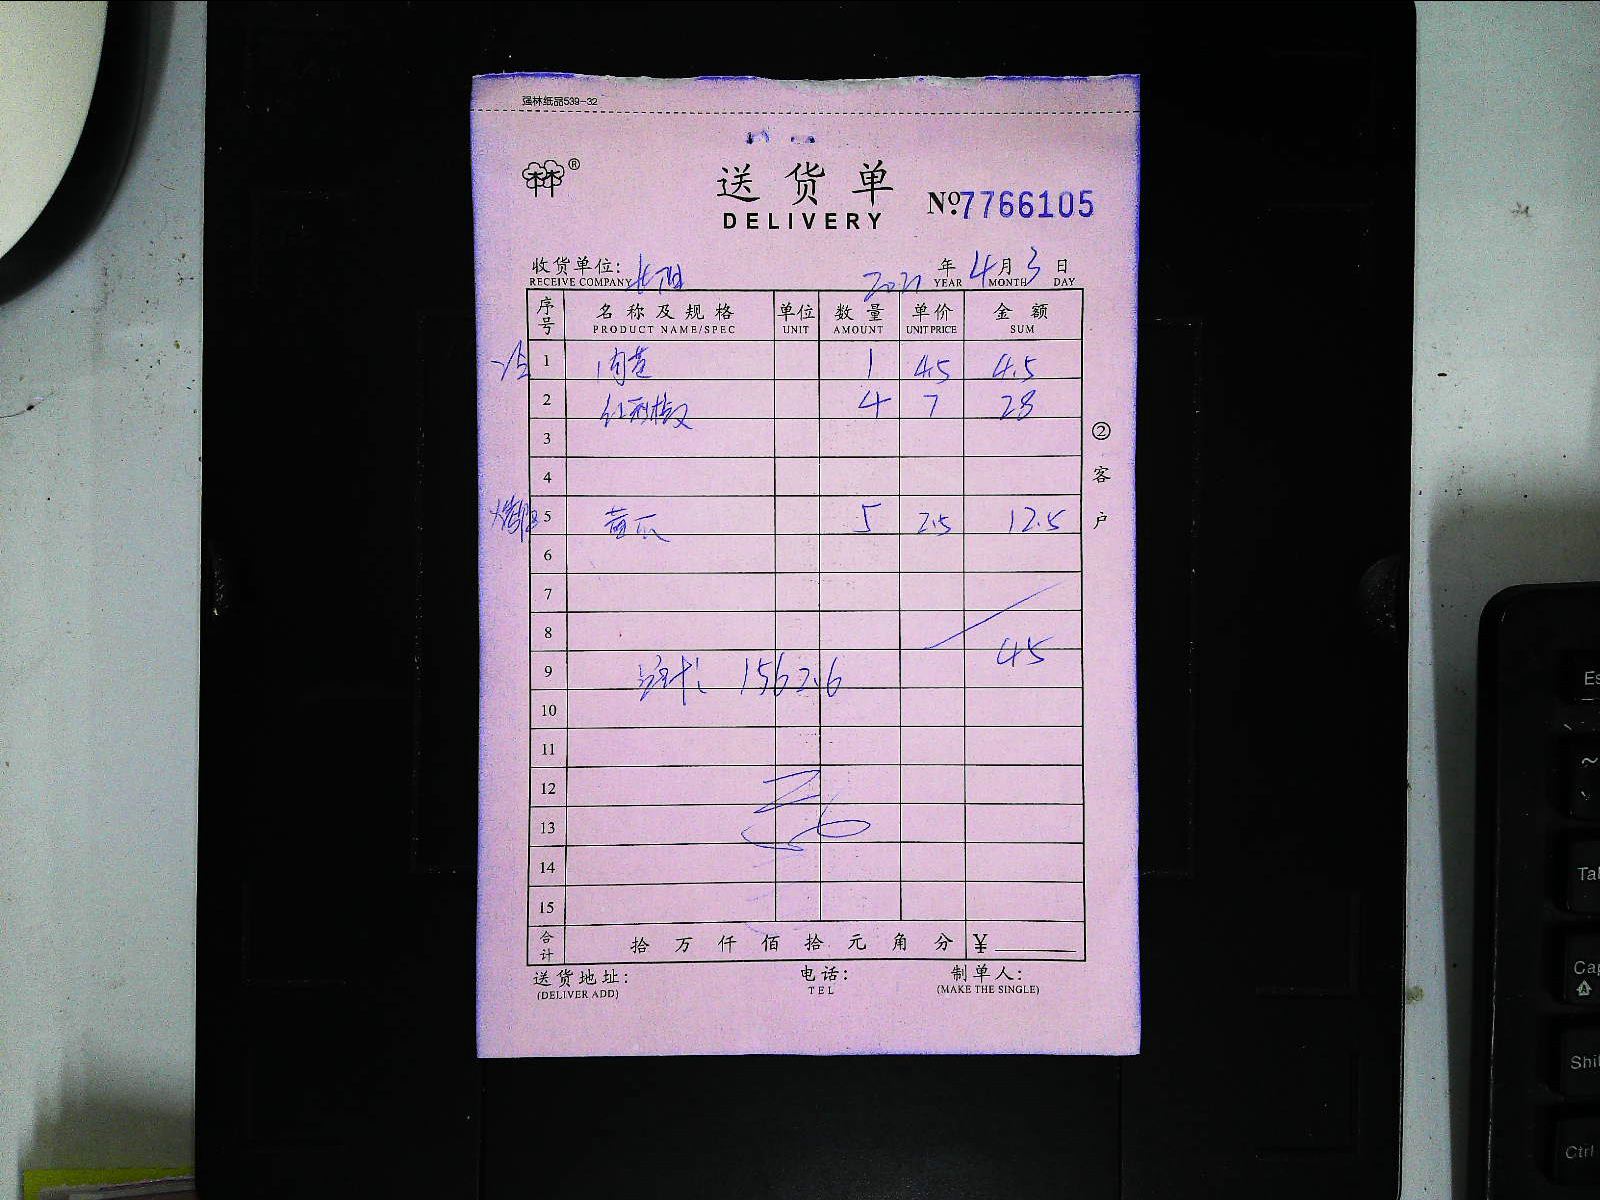 强林纸品539-32
林林®
送货单 No.7766105
DELIVERY
收货单位: 2021年4月3日
RECEIVE COMPANY YEAR MONTH DAY
序号 名称及规格 单位 数量 单价 金额
PRODUCT NAME/SPEC UNIT AMOUNT UNIT PRICE SUM
1 1 4.5 4.5
2 4 7 28
3
4
5 黄瓜 5 2.5 12.5
6
7
8
45
9 总计: 1562.6
10
11
12
13
14
15
合计 拾万仟佰拾元角分 ¥
送货地址: 电话: 制单人:
(DELIVER ADD) TEL (MAKE THE SINGLE)
②客户
Es
~
Tab
Cap
Shi
Ctrl